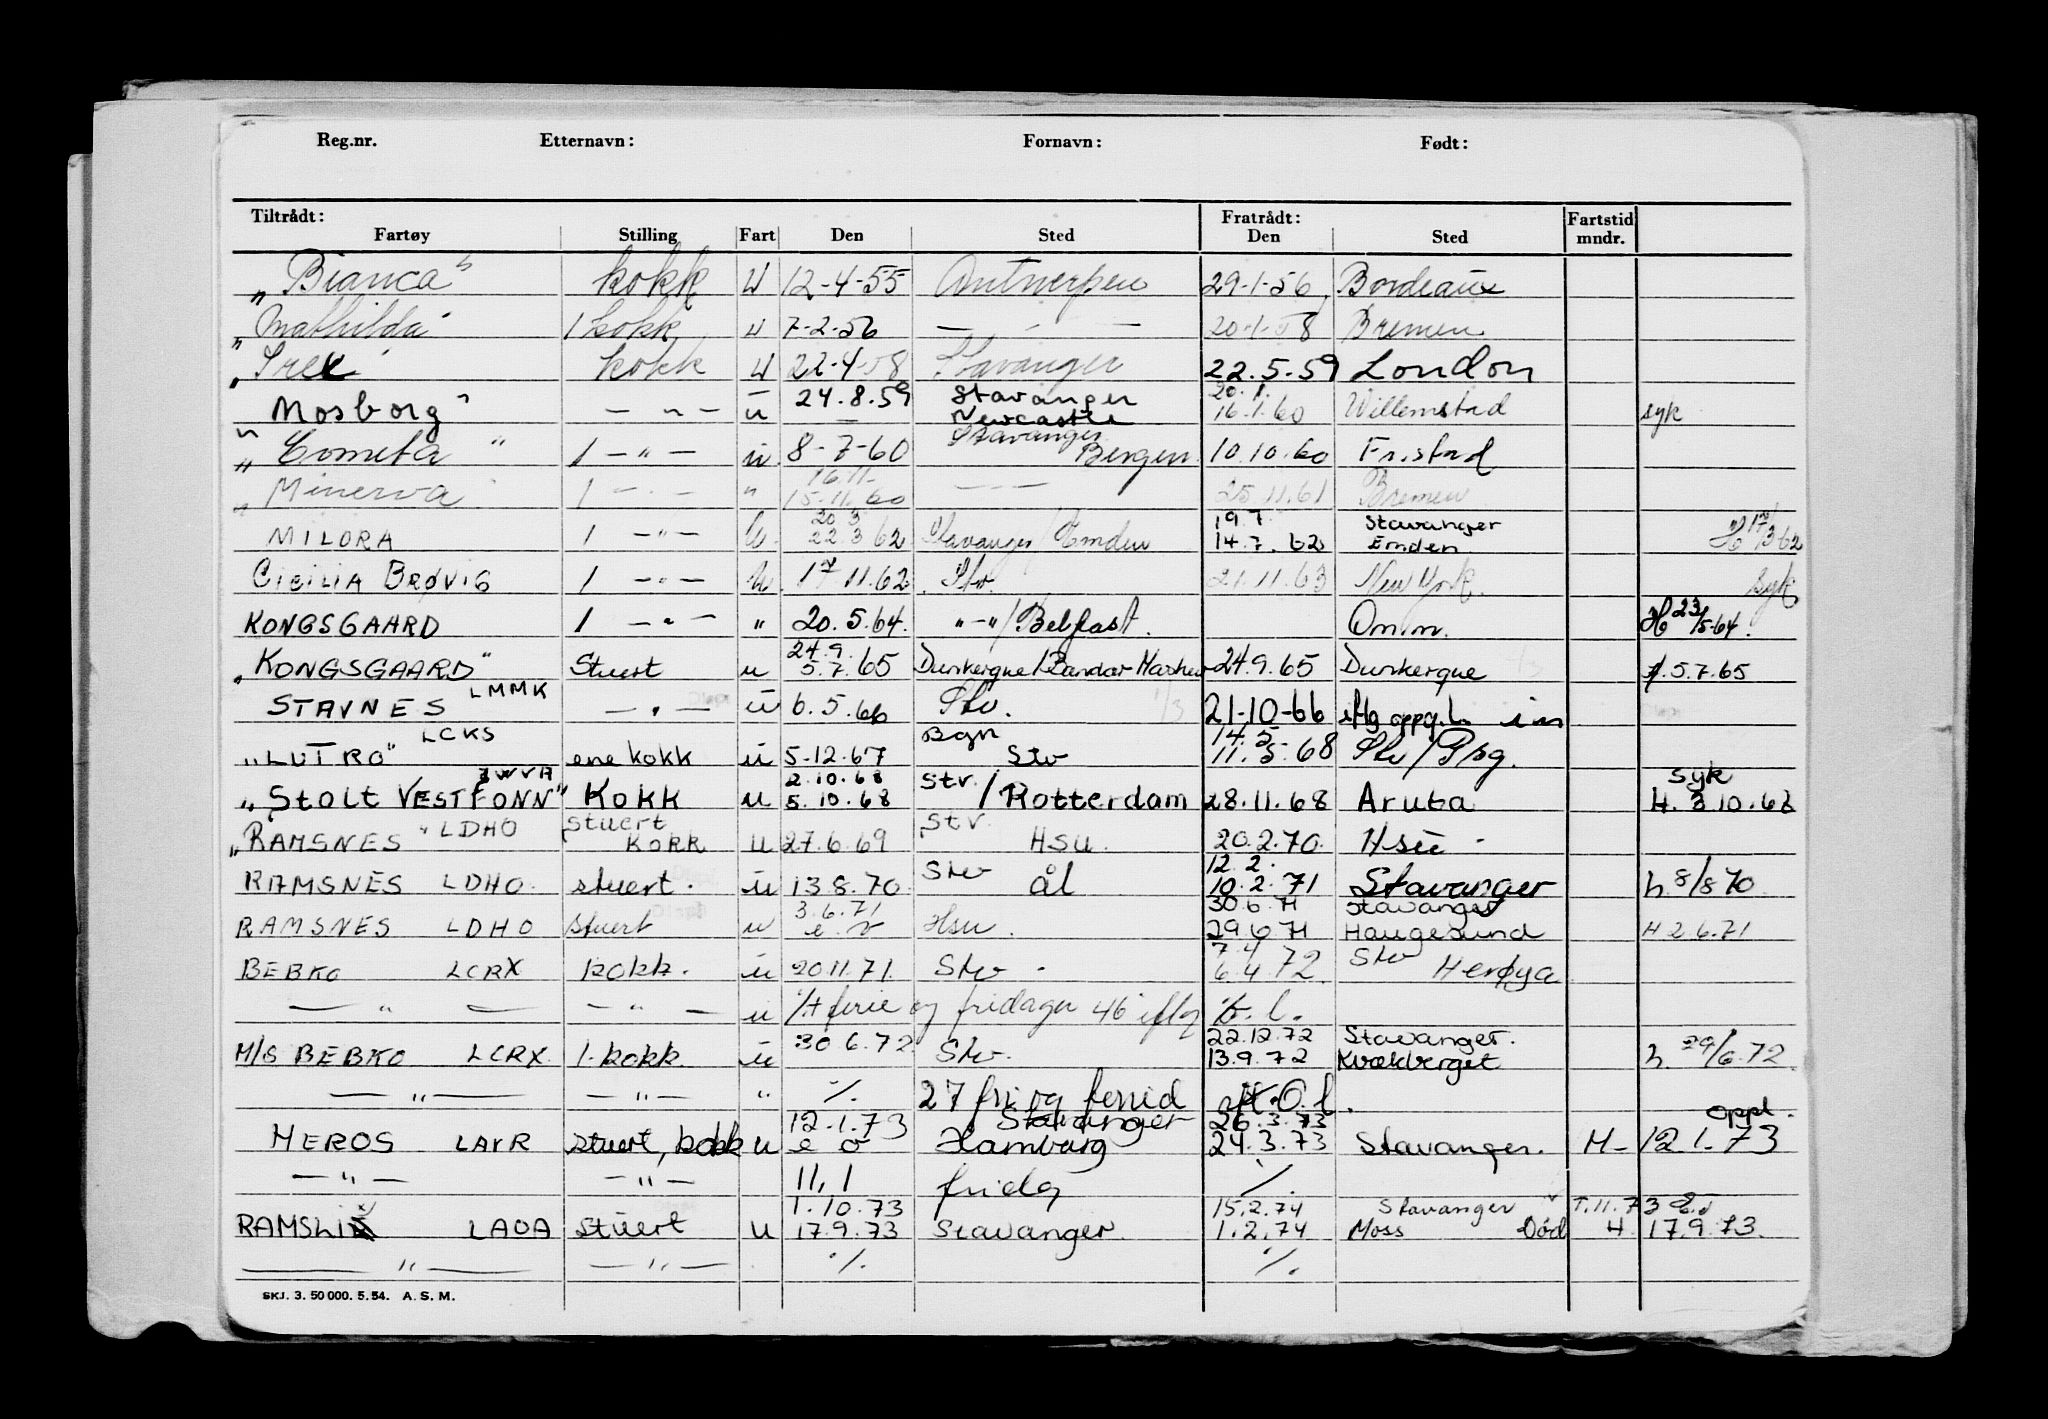 Reg.nr. Etternavn: Fornavn: Født:
Tiltrådt: Fratrådt: Fartstid
Fartøy Stilling Fart Den Sted Den Sted mndr.
„Bianca" kokk u 12-4-55 Antwerpen 29-1-56 Bordeaux
„Mathilda" 1 kokk u 7-2-56 — - — 20-1-58 Bremen
„Irex" kokk u 22-4-58 Stavanger 22.5.59 London
24.8.59 Stavanger 20.1.
„Mosborg" — " — u — Newcastle 16.1.60 Willemstad syk
Stavanger
„Cometa" 1 — " — u. 8-7-60 Bergen 10.10.60 Fr.stad
16.11.
„Minerva" 1 — " — " 15.11.60 — — 25.11.61 Bremen
20 3 19.7. Stavanger
MILORA 1 — " — u. 22.3 62 Stavanger/Emden 14.7.62 Emden H 17/3 62
CICILIA BRØVIG 1 — " — u. 17 11.62. Stv. 21.11.63 New York. syk
KONGSGAARD 1 — " — " 20.5.64. "-"/Belfast. Omm. H 23/5-64.
24.9.
„KONGSGAARD" Stuert u 5.7.65 Dunkerque/Bandar 24.9.65 Dunkerque 5.7.65
STAVNES LMMK — " — u 6.5.66 Stv. 21-10-66 iflg oppg.
LCKS Bgn 14.5
„LUTRO" ene kokk u 5-12-67 Stv 11.5-68 Stv/Ppg.
2.10.68 Stv. syk
„STOLT VESTFONN" Kokk u 5.10.68 / Rotterdam 28.11.68 Aruba H. 3 10.68
Stuert Stv.
„RAMSNES" LDHO KOKK u 27.6.69 HSU. 20.2.70. Hsu -
Stv 12.2.
RAMSNES LDHO. stuert. u 13.8.70. ål 10.2.71 Stavanger h. 8/8 70.
3.6.71 30.6.71 Stavanger
RAMSNES LDHO stuert u e.v Hsu. 29.6.71 Haugesund H 2.6.71
7.4 Stv
BEBKO LCRX kokk. u 20.11.71. Stv - 6.4.72. Herøya
— " — — " — u % ferie og fridager 46 iflg
30 6.72. 22.12.72 Stavanger.
M/S BEBKO LCRX 1. kokk. u Stv. 13.9.72 Kvækberget h. 29/6.72.
— " — — " — " % 27 fri og ferie
12.1.73 Stavanger 26.3.73 oppl.
HEROS LAYR stuert, kokk u e o Hamburg 24.3.73 Stavanger. M- 12.1.73
— " — — " — 11,1 fridg %.
1.10.73 15.2.74 Stavanger T.11.73
RAMSLI LAOA stuert u 17.9.73 Stavanger. 1.2.74 Moss Død H 17.9.73.
— " — — " — %. %.
SKJ. 3. 50 000. 5. 54. A. S. M.